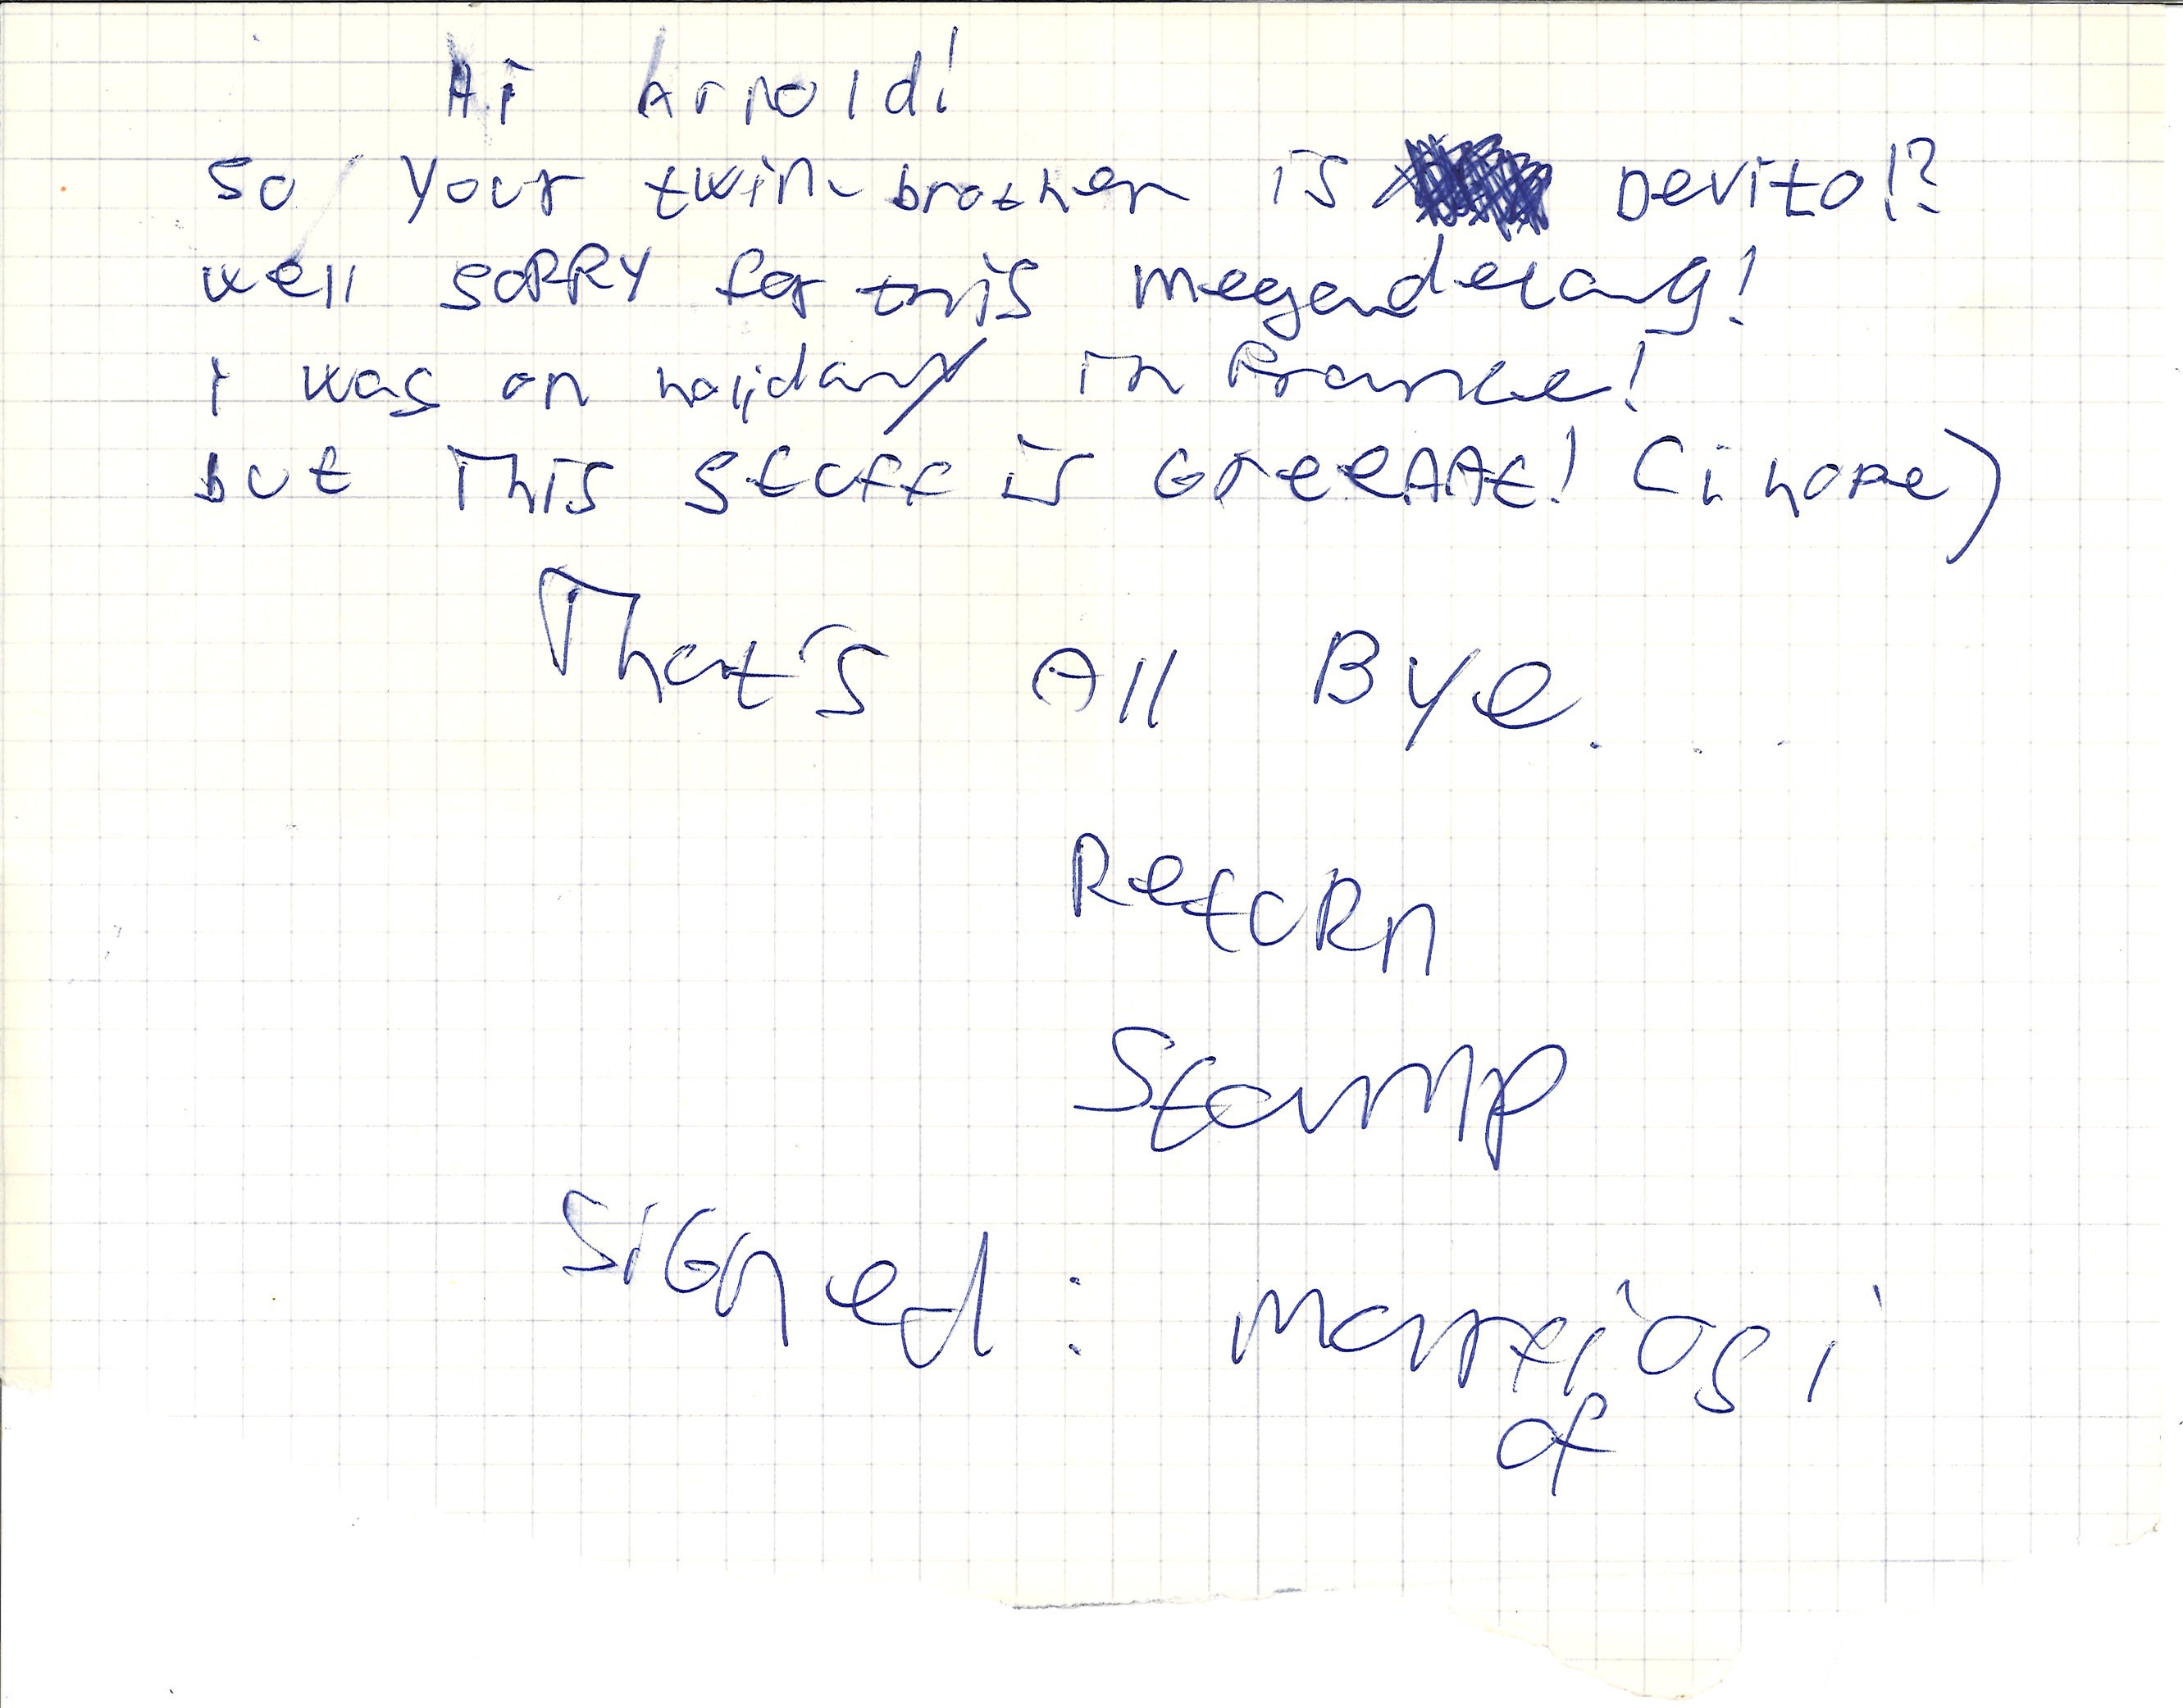 Hi Arnold!
so your twin-brother is Devito!?
well SORRY for this megadelay!
i was on holiday in France!
but This stuff is GreeAAt! (i hope)
That's All Bye...
RetuRn
Stamp
SiGned:
of